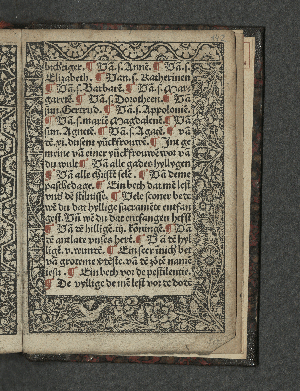 bichtiger. ¶ Vā. s. Anne. ¶ Vā. s.
Elizabeth. ¶ Van. s. Katherinen
¶ Vā. s. Barbarē. ¶ Vā. s. Mar-
garetē. ¶ Vā. s. Dorotheen. ¶ Vā
sun. Gertrud. ¶ Vā. s. Appolonie.
¶ Vā. s. marie Magdalenē. ¶ Vā
sun. Agnete. ¶ Vā. s. Agate. ¶ vā
dē. xi. dusent yūckfrouwē. ¶ Int ge
meine vā einer yūckfrouwē wor vā
du wult ¶ Vā alle gades hylligen
¶ Vā alle christē selē. ¶ Vā deme
pastledage. ¶ Ein beth dat mē lest
vnd dē stilnisse. ¶ Vele sconer bede
wē du dat hyllige sacramēte entfan
gest. Vn wē du dat entfangen hefst
¶ Vā dē hillige. iij. köningē. ¶ Vā
dē antlate vnses herē. ¶ Vā dē hyl
lige. v. wundē. ¶ Ein seer innich bet
vā groteme vrēste. vā dē sötē namē
iesu. ¶ Ein beth vor de pestilentie.
¶ De vyllige de mē lest vor de dodē